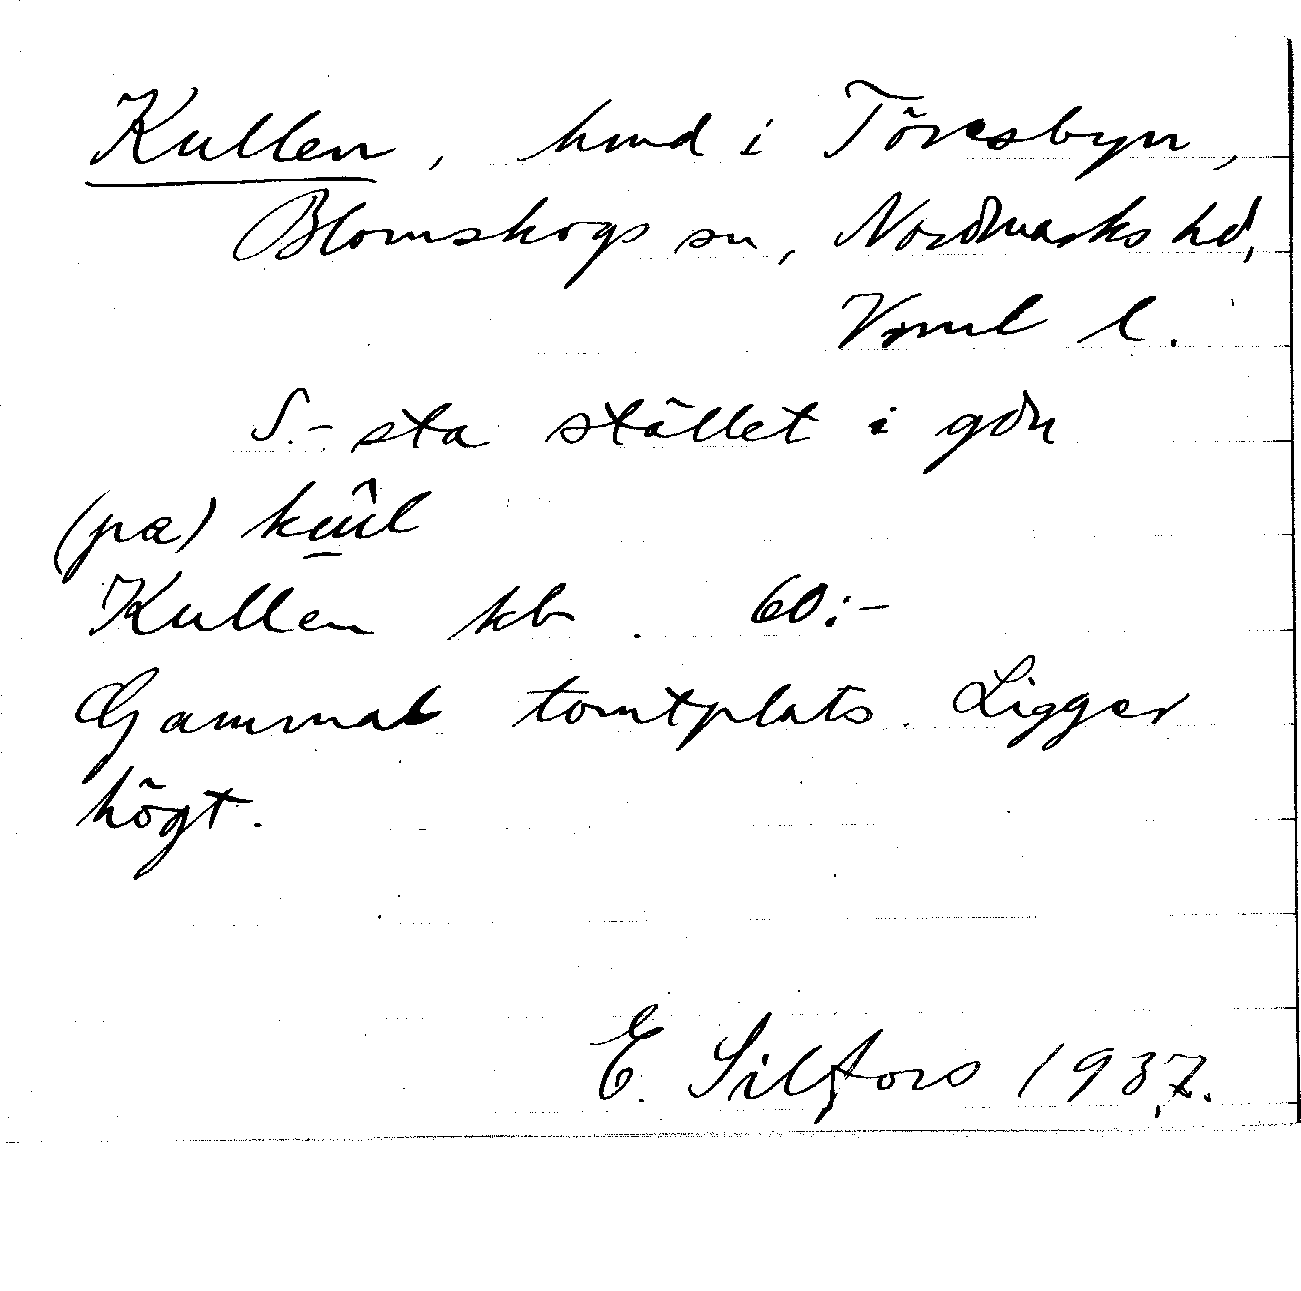 Kullen, hmd i Töresbyn,
Blomskogs sn, Nordmarks hd,
Vrml l.
S.-sta stället i gdn
(pæ)
Kullen kb. 60:-
Gammal tomtplats. Ligger
högt.
E. Silfors 1937.